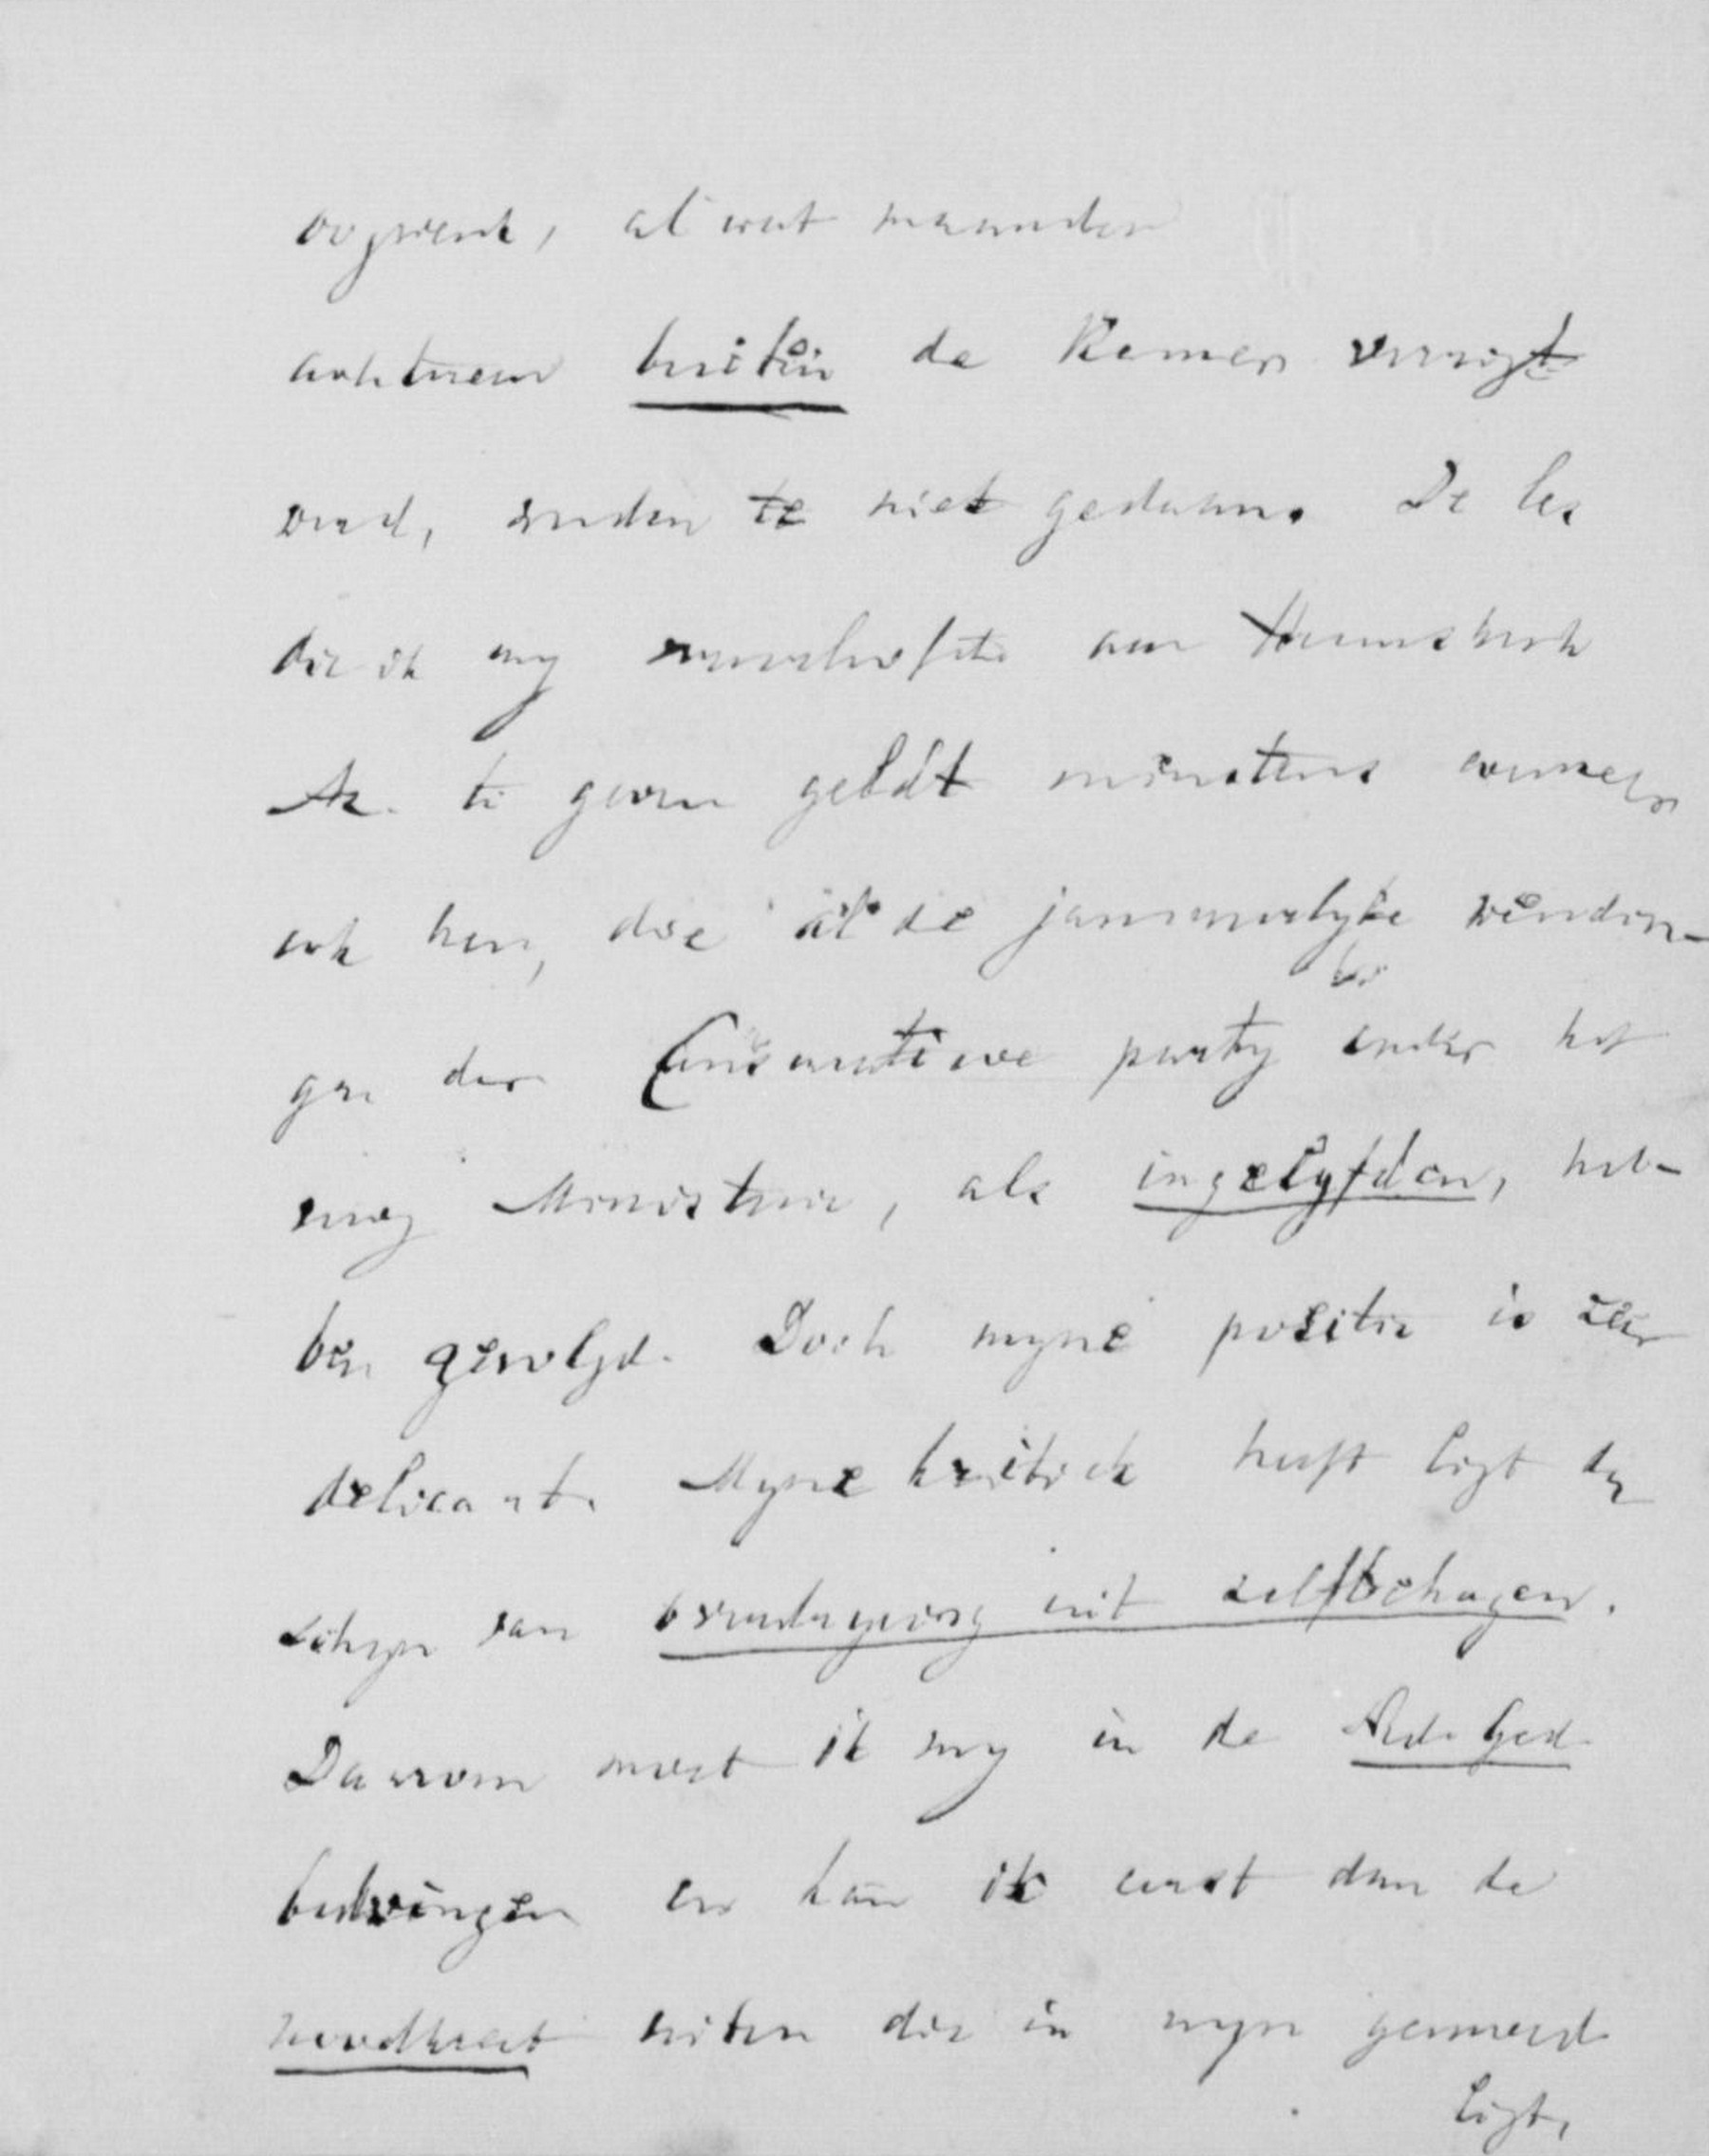 oogwenk, al wat maanden
achtereen buiten de Kamer verrigt
werd, worden te niet gedaan. De les
die ik my veroorloofde aan Heemskerk
Az. te geven geldt minstens evenzeer
ook hen, die al de jammerlyke wendin-
gen der Conservatieve party onder het
vorig Ministerie, als ingelyfden, heb-
ben gevolgd. Doch myne positie is zeer
delicaat. Myne kritiek heeft ligt den
schyn van uit zelfbehagen.
Daarom moet ik my in de Ned. Ged.
bedwingen en kan ik eerst dan de
noodkreet uiten die in myn gemoed
ligt,